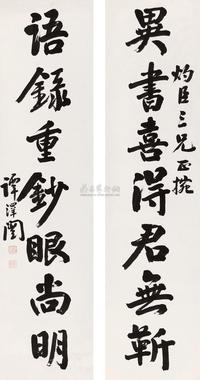 異書喜得君無靳
灼臣三兄正捥
語錄重鈔眼尚明
譚澤闓